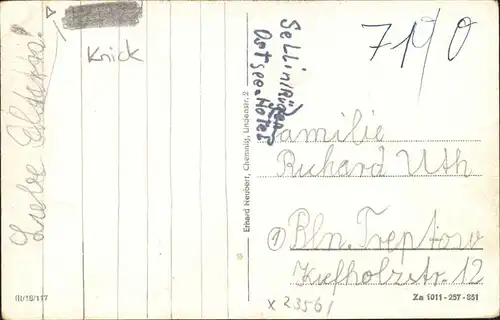 Liebe
Knick
Sellin/Rügen
Ostsee-Hotel
7190
Familie
Richard Uth
① Bln. Treptow
Kiefholzstr. 12
Erhard Neubert, Chemnitz, Lindenstr. 2
III/18/117
x 2356/
Za 6011-257-851